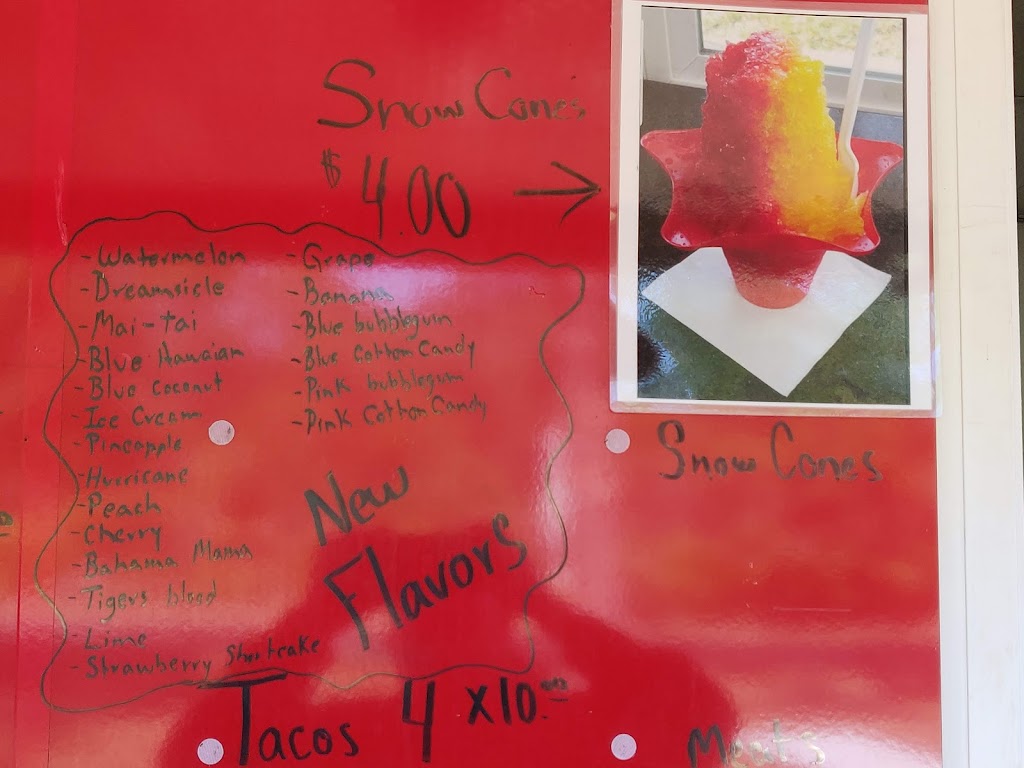 Snow Cones
$4.00 →
- Watermelon
- Dreamsicle
- Mai-tai
- Blue Hawaiian
- Blue Coconut
- Ice Cream
- Pineapple
- Hurricane
- Peach
- Cherry
- Bahama Mama
- Tigers blood
- Lime
- Strawberry Shortcake
- Grape
- Banana
- Blue bubblegum
- Blue Cotton Candy
- Pink bubblegum
- Pink Cotton Candy
New
Flavors
Snow Cones
Tacos 4 x10.00
Meats